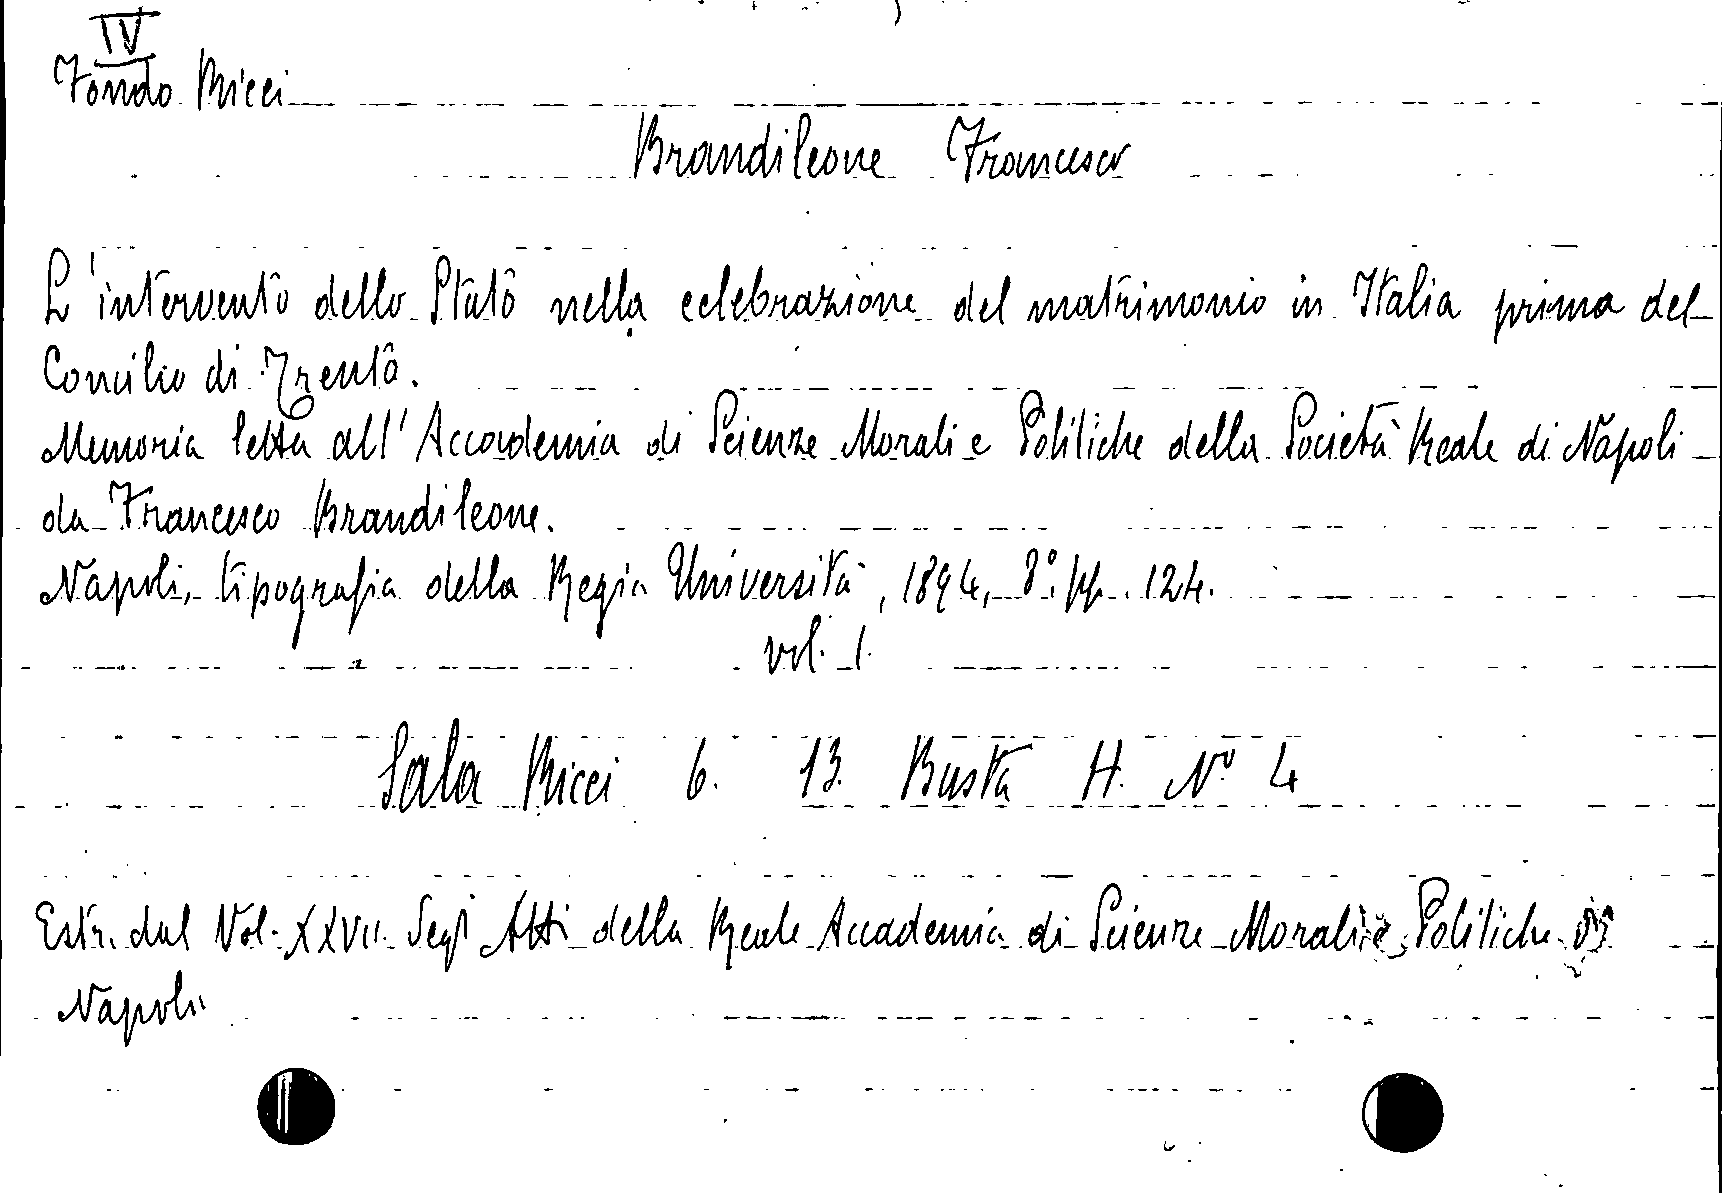 IV
Fondo Ricci
Brandileone Francesco
L'intervento dello Stato nella celebrazione del matrimonio in Italia prima del
Concilio di Trento.
Memoria letta all'Accademia di Scienze Morali e Politiche della Società Reale di Napoli
da Francesco Brandileone.
Napoli, tipografia della Regia Università, 1894, 8°. pp. 124.
vol. 1.
Sala Ricci 6. 13. Busta H. N° 4
Estr. dal Vol. XXVII. degl' Atti della Reale Accademia di Scienze Morali e Politiche di
Napoli